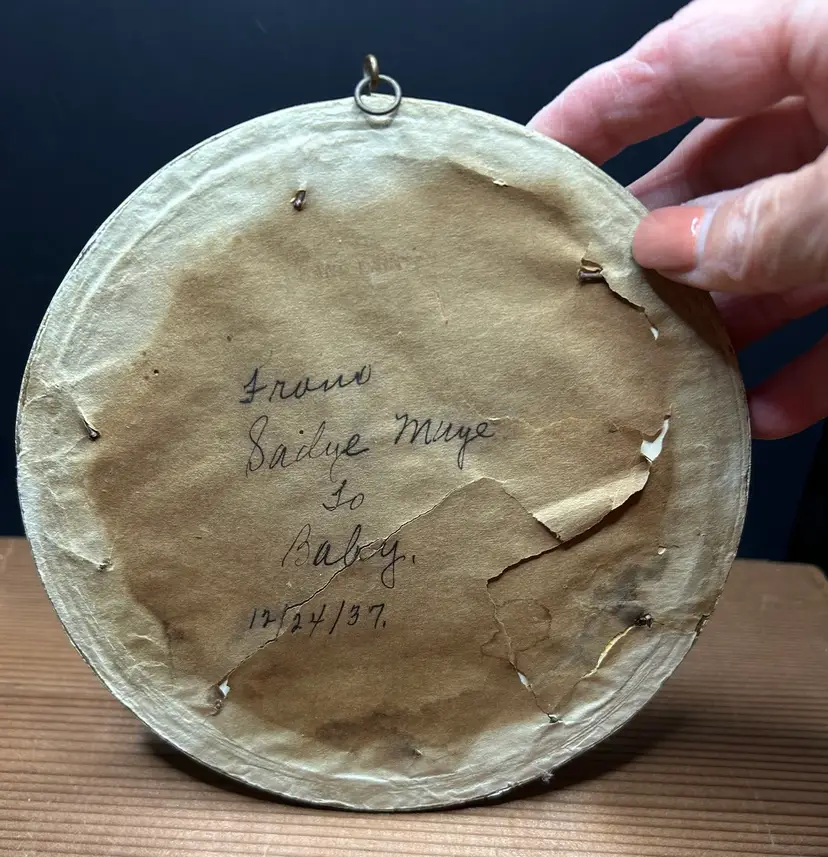 From
Sadye Maye
To
Baby.
12/24/37.